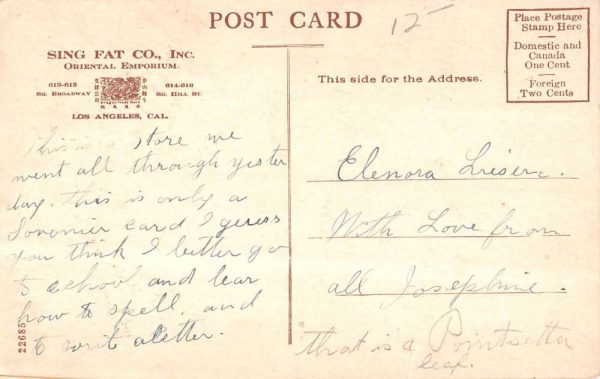 POST CARD
12-
SING FAT CO., INC.
ORIENTAL EMPORIUM
613-615
SO. BROADWAY
614-616
SO. HILL ST.
LOS ANGELES, CAL.
Place Postage
Stamp Here
Domestic and
Canada
One Cent
Foreign
Two Cents
This side for the Address.
This is a store we
went all through yester
day. this is only a
card I guess
you think I better go
to school and lear
how to spell, and
to write aletter.
22685
Elenora
With Love from
all Josephine.
"that is a Pointsetta
leaf.